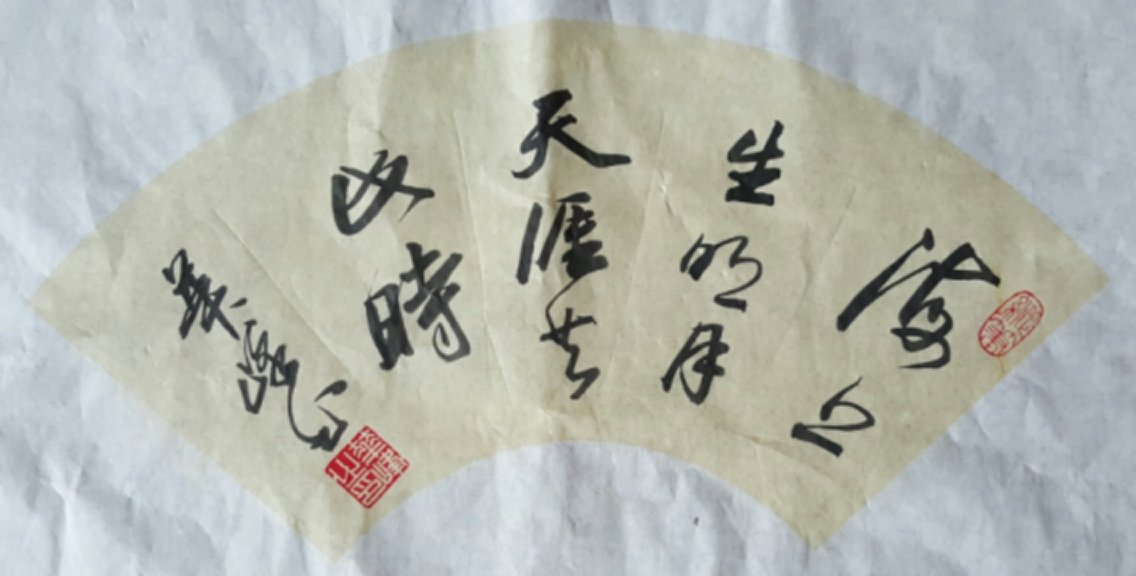 海上
生明月
天涯共
此時